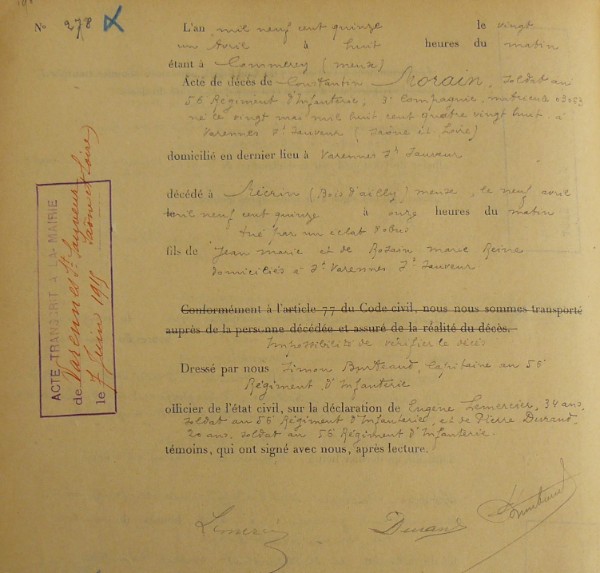 No 278
L'an mil neuf cent quinze le vingt
un Avril à huit heures du matin
étant à Commercy (Meuse)
Acte de décès de Constantin Morain, soldat au
56 Régiment d'Infanterie, 3e Compagnie, matricule 03083
né le vingt mai mil huit cent quatre vingt huit à
Varennes St Sauveur (Saône et Loire)
domicilié en dernier lieu à Varennes St Sauveur
décédé à Mécrin (Bois d'ailly) meuse, le neuf avril
mil neuf cent quinze à onze heures du matin
tué par un éclat d'obus
fils de Jean marie et de Rozain marie Reine
domiciliés à St Varennes St Sauveur
Conformément à l'article 77 du Code civil, nous nous sommes transporté
auprès de la personne décédée et assuré de la réalité du décès.
Impossibilité de vérifier le décès
Dressé par nous Simon Capitaine au 56
Régiment d'Infanterie
officier de l'état civil, sur la déclaration de Eugène Lemercier, 34 ans,
soldat au 56 Régiment d'Infanterie, et de Pierre Durand,
20 ans, soldat au 56 Régiment d'Infanterie
témoins, qui ont signé avec nous, après lecture.
Durand
ACTE TRANSCRIT A LA MAIRIE
de Varennes St Sauveur
Saône et Loire
le 7 Juin 1915